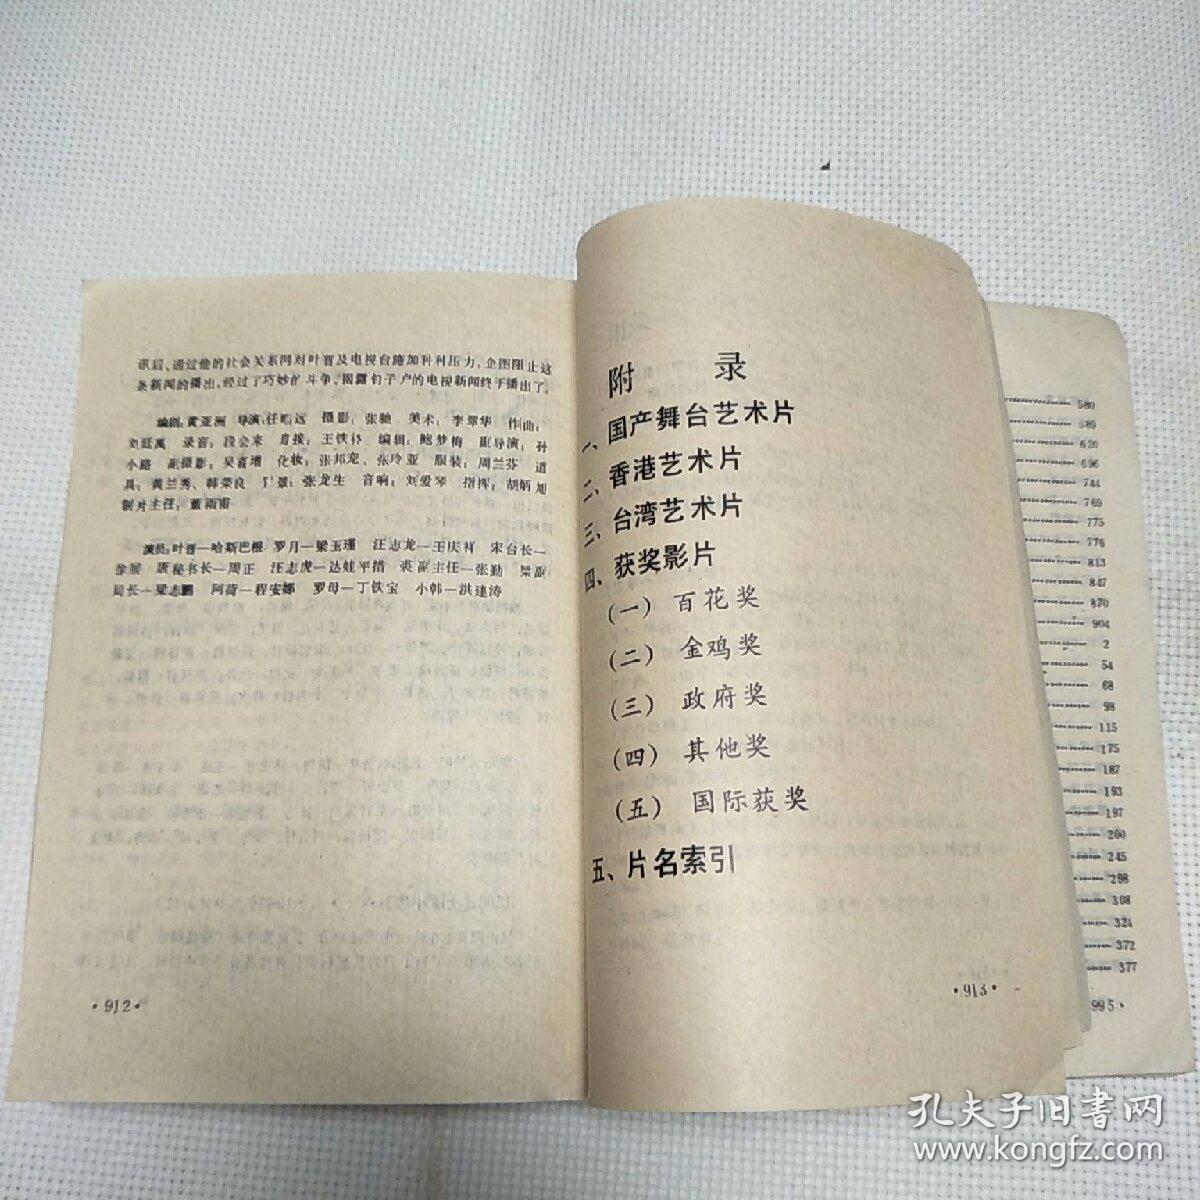 讯后、通过他的社会关系网对叶晋及电视台施加种种压力，企图阻止这
条新闻的播出。经过了巧妙的斗争，揭露钉子户的电视新闻终于播出了。
编剧：黄亚洲 导演：任鹏远 摄影：张驰 美术：李翠华 作曲：
刘廷禹 录音：段会来 剪接：王铁 编辑：鲍梦梅 副导演：孙
小璐 副摄影：吴喜增 化妆：张邦宠、张玲亚 服装：周兰芬 道
具：黄兰秀、韩荣良 景：张龙生 音响：刘爱琴 指挥：胡炳旭
制片主任：董雨甫
演员：叶晋—哈斯巴根 罗月—梁玉瑾 汪志龙—王庆祥 宋台长—
徐展 唐秘书长—周正 汪志虎—达娃平措 裘副主任—张勤 梁副
局长—梁志鹏 阿荷—程安娜 罗母—丁铁宝 小韩—洪建涛
·912·
附 录
一、国产舞台艺术片
二、香港艺术片
三、台湾艺术片
四、获奖影片
(一) 百花奖
(二) 金鸡奖
(三) 政府奖
(四) 其他奖
(五) 国际获奖
五、片名索引
·913·
580
589
620
696
744
769
775
776
813
847
870
904
2
54
68
98
115
175
187
193
197
200
245
298
308
324
372
377
995·
孔夫子旧书网
www.kongfz.com